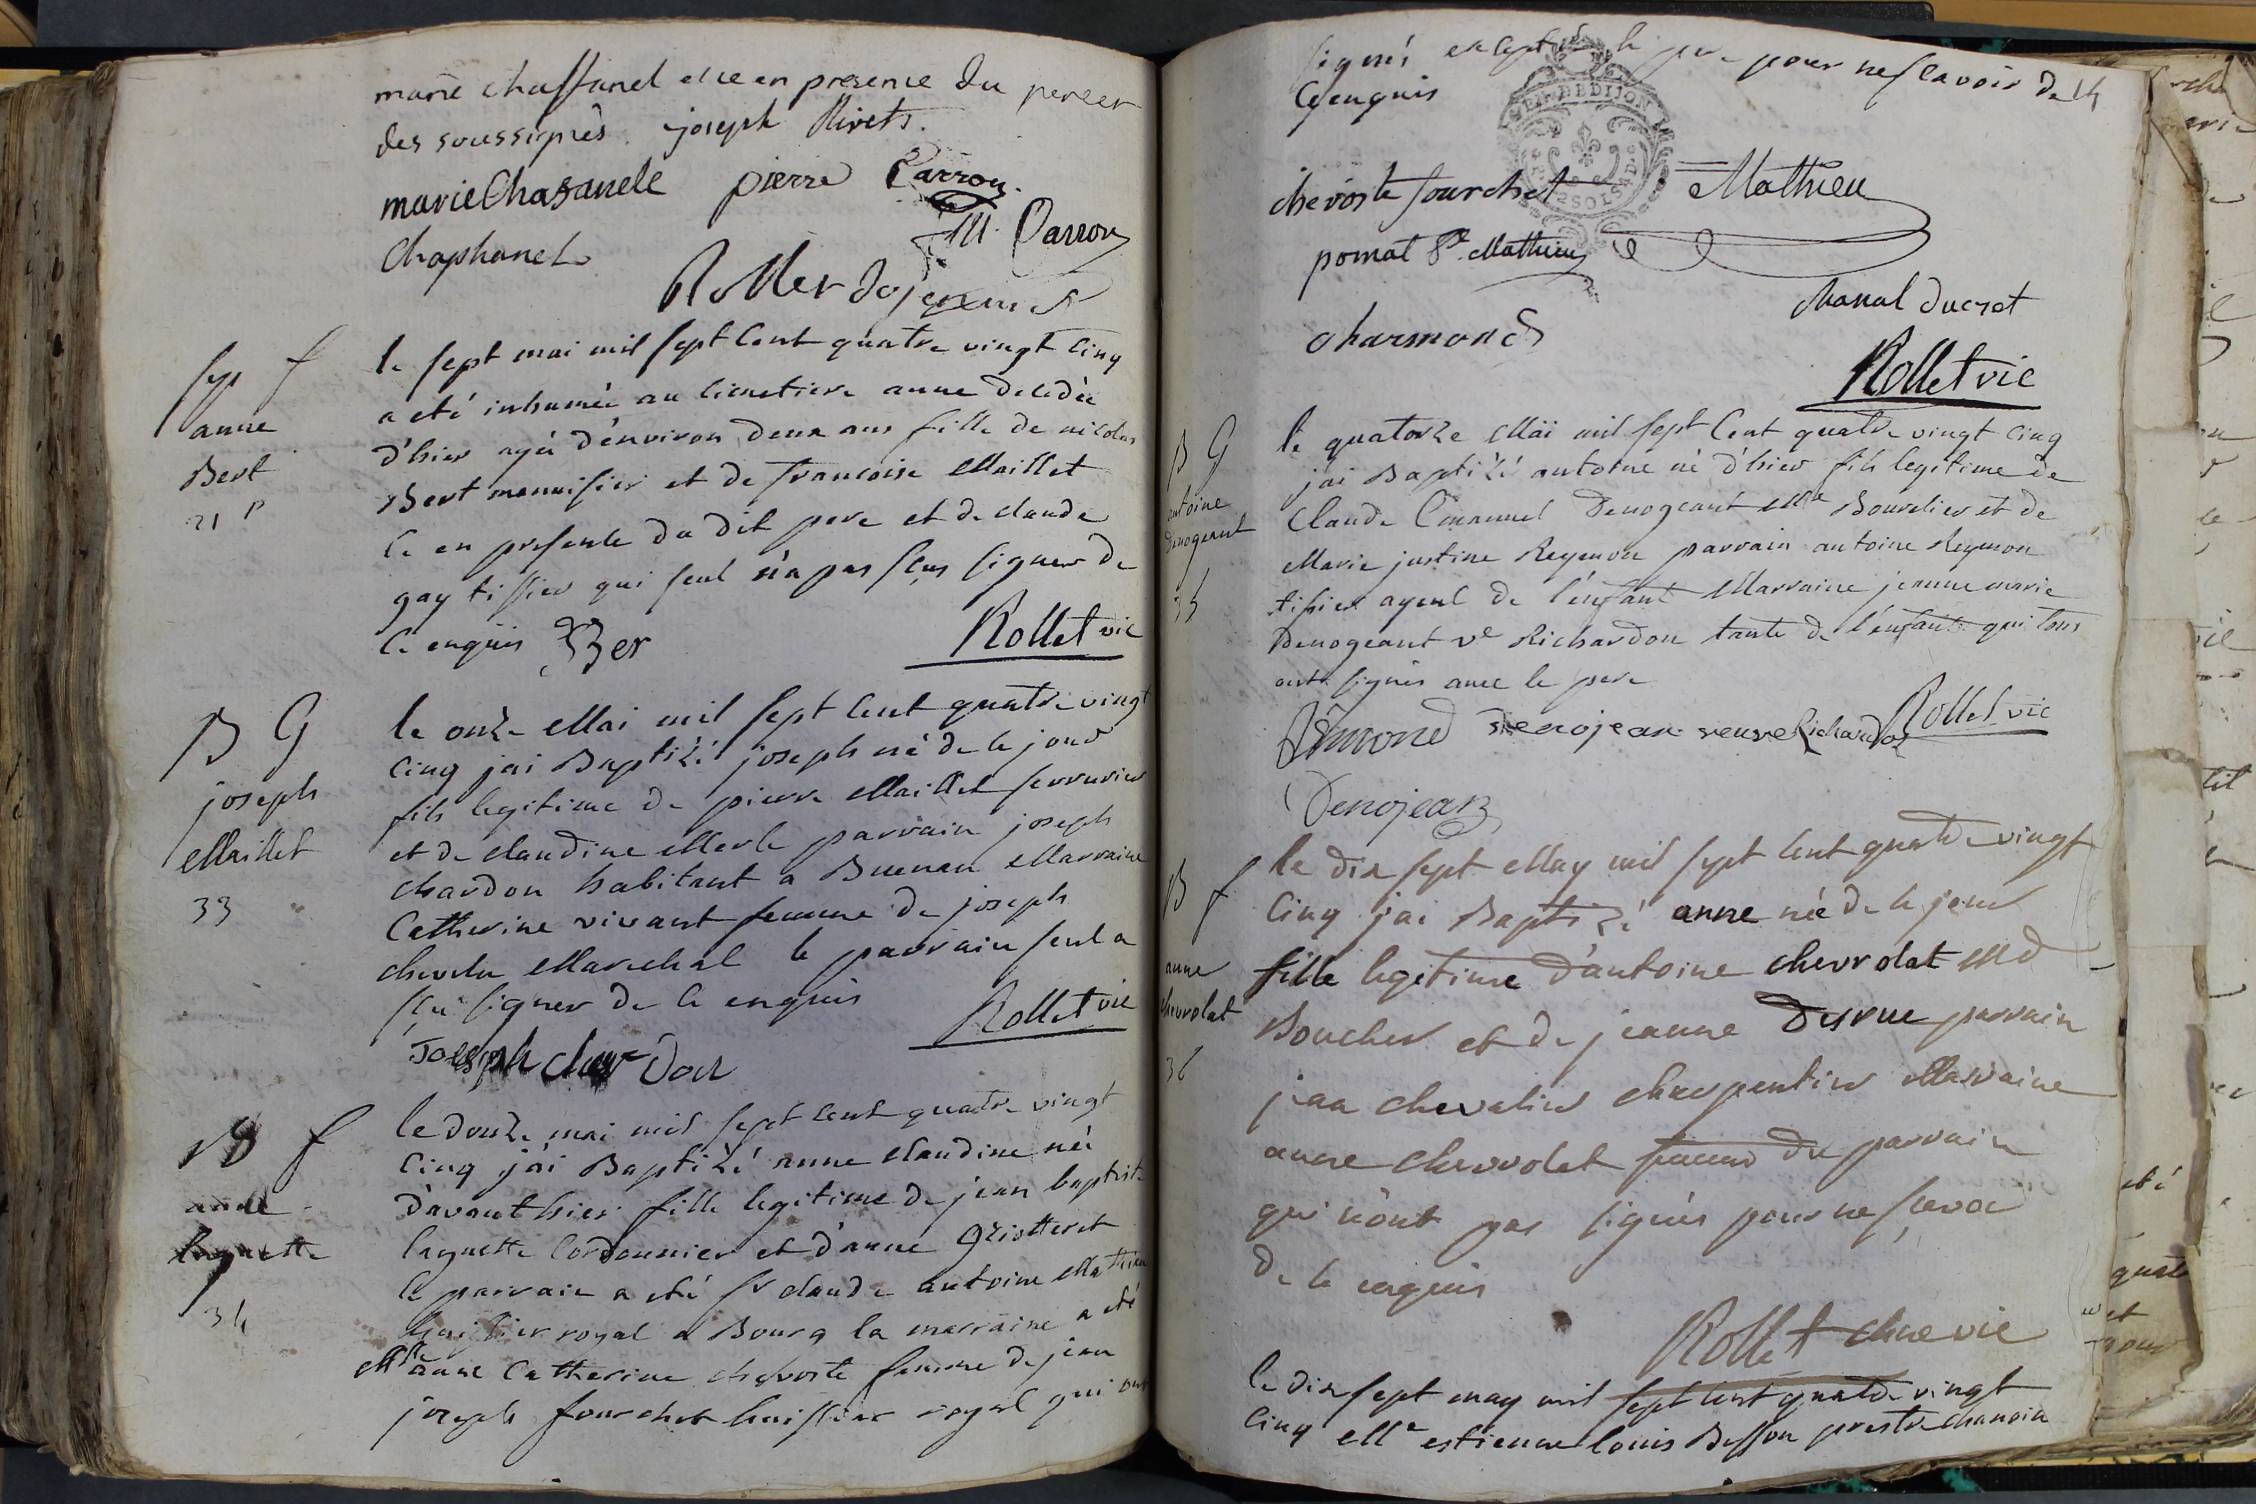 marie chaffanel elle en presence du pere et
des soussignés joseph Rivets.
marie Chasanele pierre Carron
M. Carron
Chaphanel
Rollet doyen
sep f
anne
Bert
21 P
le sept mai mil sept Cent quatre vingt Cinq
a eté inhumée au Cimetiere anne decedée
d'hier agée d'environ deux ans fille de nicolas
Bert menuisier et de francoise Maillet
Ce en presence du dit pere et de claude
gay tissier qui seul n'a pas sçus signer de
Ce enquis Ber Rollet vic
B G
joseph
Maillet
33
le onze Mai mil sept Cent quatre vingt
Cinq jai Baptizé joseph né de Ce jour
fils legitime de pierre Maillet serrurier
et de claudine Merle parrain joseph
chardon habitant a Buenan Marraine
Catherine vivant femme de joseph
Marechal le parrain seul a
sçu signer de Ce enquis Rollet vic
Joseph chardon
B f
anne
laguette
34
le douze mai mil sept Cent quatre vingt
Cinq j'ai Baptizé anne claudine née
d'avanthier fille legitime de jean baptiste
laguette Cordonnier et d'anne griotteret
le parrain a eté sr claude antoine Mathieu
huissier royal a Bourg la marraine a eté
Mlle anne Catherine chevoste femme de jean
joseph fourchet huissier royal qui ont
signés excepté le pere pour ne sçavoir de
Ce enquis
GEN. DE DIJON
chevoste fourchet Mathieu
pomat Mathieu
chanal ducret
charmond
Rollet vic
B G
antoine
Denogeant
35
le quatorze Mäi mil sept Cent quatre vingt Cinq
jai Baptizé antoine né d'hier fils legitime de
Claude Emanuel Denogeant Me Bourelier et de
Marie justine Reymon parrain antoine Reymon
tissier ayeul de l'enfant Marraine jeanne marie
Denogeant ve Richardon tante de l'enfant qui tous
ont signés avec le pere
Rémond Denojean veuve Richardon Rollet vic
Denojean
B f
anne
chevrolat
36
le dix sept May mil sept Cent quatre vingt
Cinq jai Baptizé anne née de Ce jour
fille legitime d'antoine chevrolat Md
Boucher et de jeanne Desrue parrain
jean chevalier charpentier Marraine
anne chevrolat femme du parrain
qui n'ont pas signés pour ne sçavoir
de Ce enquis
Rollet chne vic
le dix sept may mil sept Cent quatre vingt
Cinq Mre estienne louis Besson prestre chanoine